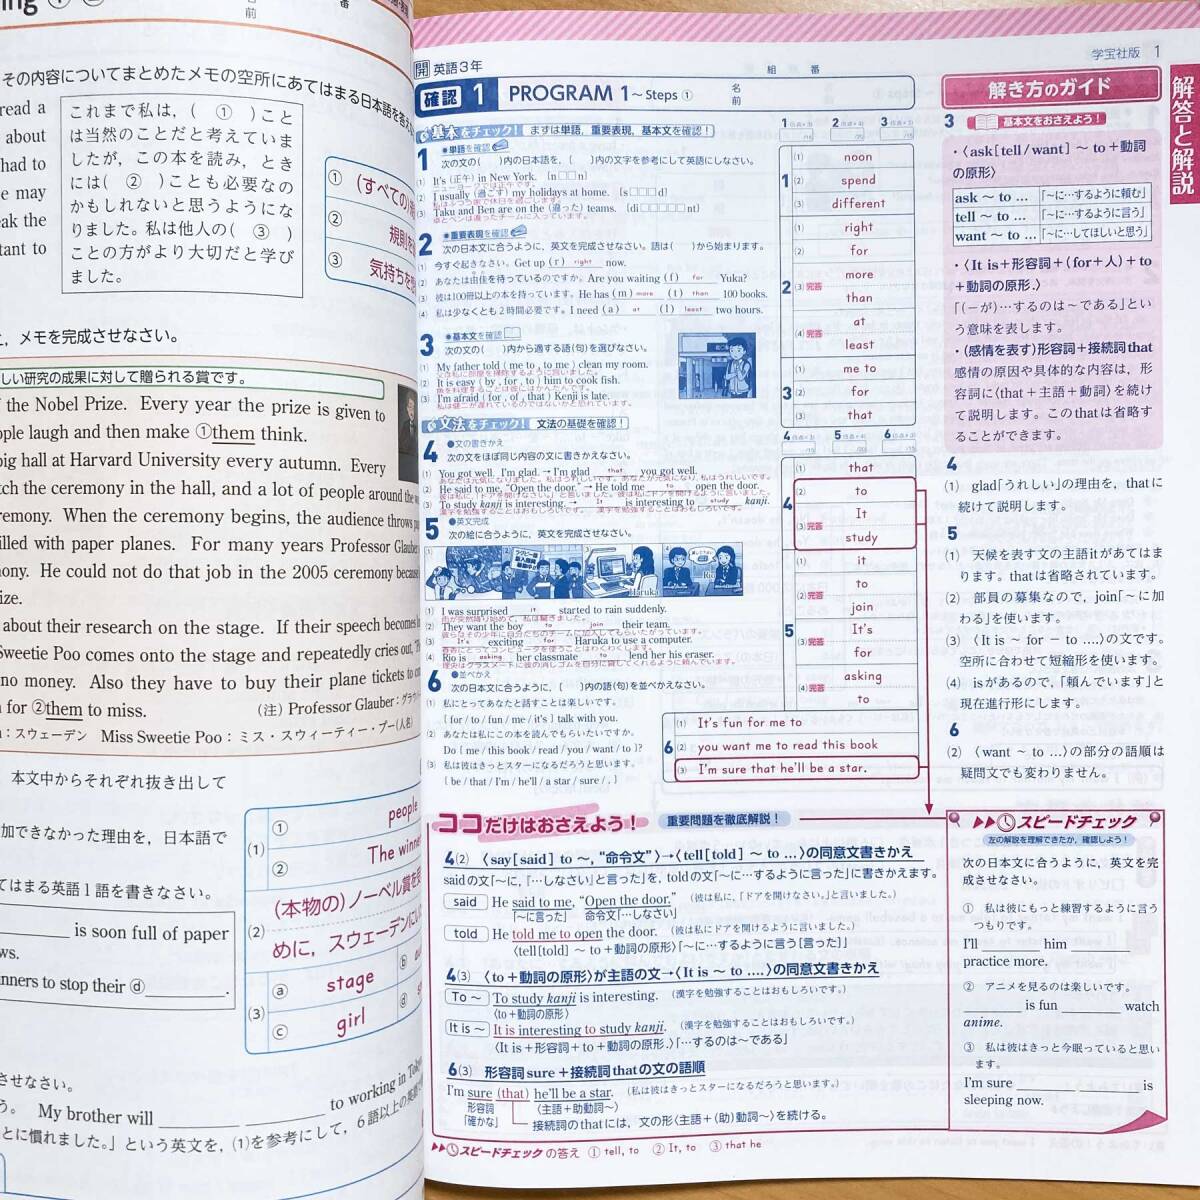 番
前
その内容についてまとめたメモの空所にあてはまる日本語を答え
read a
about
had to
e may
eak the
tant to
これまで私は，( ① )こと
は当然のことだと考えていま
したが，この本を読み，とき
には( ② )ことも必要なの
かもしれないと思うようにな
りました。私は他人の( ③ )
ことの方がより大切だと学び
ました。
① (すべての)
② 規則を
③ 気持ちを
，メモを完成させなさい。
しい研究の成果に対して贈られる賞です。
the Nobel Prize. Every year the prize is given to
ople laugh and then make ①them think.
big hall at Harvard University every autumn. Every
tch the ceremony in the hall, and a lot of people around the
remony. When the ceremony begins, the audience throws
illed with paper planes. For many years Professor Glauber
nony. He could not do that job in the 2005 ceremony because
ize.
about their research on the stage. If their speech becomes
Sweetie Poo comes onto the stage and repeatedly cries out,
no money. Also they have to buy their plane tickets to
n for ②them to miss.
(注) Professor Glauber：
：スウェーデン Miss Sweetie Poo：ミス・スウィーティー・プー(人名)
本文中からそれぞれ抜き出して
加できなかった理由を，日本語で
てはまる英語1語を書きなさい。
is soon full of paper
ws.
nners to stop their ⓓ .
(1) ① people
② The winne
(2) (本物の)ノーベル賞を
めに，スウェーデンに
(3) ⓐ stage ⓑ
ⓒ girl ⓓ
させなさい。
う。 My brother will to working in
とに慣れました。」という英文を，(1)を参考にして，6語以上の英語
開 英語3年
組 番
学宝社版 1
確認 1 PROGRAM 1～Steps ①
名前
解答と解説
基本をチェック！ まずは単語，重要表現，基本文を確認！
1 ●単語を確認
次の文の( )内の日本語を，( )内の文字を参考にして英語にしなさい。
(1) It's (正午) in New York. [n□□n]
ニューヨークでは正午です。
(2) I usually (過ごす) my holidays at home. [s□□□d]
私はふつう家で休日を過ごします。
(3) Taku and Ben are on the (違った) teams. [di□□□□□nt]
卓とベンは違ったチームに入っています。
2 ●重要表現を確認
次の日本文に合うように，英文を完成させなさい。語は( )から始まります。
(1) 今すぐ起きなさい。Get up ( r ) right now.
(2) あなたは由佳を待っているのですか。Are you waiting ( f ) for Yuka?
(3) 彼は100冊以上の本を持っています。He has ( m ) more ( t ) than 100 books.
(4) 私は少なくとも2時間必要です。I need ( a ) at ( l ) least two hours.
3 ●基本文を確認
次の文の( )内から適する語(句)を選びなさい。
(1) My father told ( me to , to me ) clean my room.
父は私に部屋を掃除するように言いました。
(2) It is easy ( by , for , to ) him to cook fish.
魚を料理することは彼にはかんたんです。
(3) I'm afraid ( for , of , that ) Kenji is late.
私は健二が遅れているのではないかと恐れています。
文法をチェック！ 文法の基礎を確認！
4 ●文の書きかえ
次の文をほぼ同じ内容の文に書きかえなさい。
(1) You got well. I'm glad. → I'm glad that you got well.
あなたは元気になりました。私はうれしいです。 あなたが元気になり，私はうれしいです。
(2) He said to me, "Open the door." → He told me to open the door.
彼は私に「ドアを開けなさい。」と言いました。 彼は私に「ドアを開けるように言いました。
(3) To study kanji is interesting. → It is interesting to study kanji.
漢字を勉強することはおもしろいです。 漢字を勉強することはおもしろいです。
5 ●英文完成
次の絵に合うように，英文を完成させなさい。
1 2 3 4
Haruka
Rio
(1) I was surprised it started to rain suddenly.
雨が突然降り始めて，私は驚きました。
(2) They want the boy to join their team.
彼らはその少年に自分たちのチームに加入してもらいたがっています。
(3) It's exciting for Haruka to use a computer.
春香にとってコンピュータを使うことはわくわくします。
(4) Rio is asking her classmate to lend her his eraser.
理央はクラスメートに彼の消しゴムを自分に貸してくれるように頼んでいます。
6 ●並べかえ
次の日本文に合うように，( )内の語(句)を並べかえなさい。
(1) 私にとってあなたと話すことは楽しいです。
[ for / to / fun / me / it's ] talk with you.
(2) あなたは私にこの本を読んでもらいたいですか。
Do [ me / this book / read / you / want / to ]?
(3) 私は彼はきっとスターになるだろうと思います。
[ be / that / I'm / he'll / a star / sure / . ]
1 (5点×3) /15 2 (5点×4) /20 3 (5点×3) /15
1 (1) noon
(2) spend
(3) different
2 (1) right
(2) for
(3) 完答 more
than
(4) 完答 at
least
3 (1) me to
(2) for
(3) that
4 5 6
4 (1) that
(2) to
(3) 完答 It
study
5 (1) it
(2) 完答 to
join
(3) 完答 It's
for
(4) 完答 asking
to
6 (1) It's fun for me to
(2) you want me to read this book
(3) I'm sure that he'll be a star.
解き方のガイド
3 基本文をおさえよう！
・〈ask[tell/want] ～ to＋動詞
の原形〉
ask ～ to … 「～に…するように頼む」
tell ～ to … 「～に…するように言う」
want ～ to … 「～に…してほしいと思う」
・〈It is＋形容詞＋(for＋人)＋to
＋動詞の原形.〉
「(－が)…するのは～である」とい
う意味を表します。
・(感情を表す)形容詞＋接続詞that
感情の原因や具体的な内容は，形
容詞に〈that＋主語＋動詞〉を続け
て説明します。このthatは省略す
ることができます。
4
(1) glad「うれしい」の理由を，thatに
続けて説明します。
5
(1) 天候を表す文の主語itがあてはま
ります。thatは省略されています。
(2) 部員の募集なので，join「～に加
わる」を使います。
(3) 〈It is ～ for － to ….〉の文です。
空所に合わせて短縮形を使います。
(4) isがあるので，「頼んでいます」と
現在進行形にします。
6
(2) 〈want ～ to …〉の部分の語順は
疑問文でも変わりません。
ココだけはおさえよう！ 重要問題を徹底解説！
4(2) 〈say[said] to ～, “命令文”〉→〈tell[told] ～ to …〉の同意文書きかえ
saidの文「～に，『…しなさい』と言った」を，toldの文「～に…するように言った」に書きかえます。
said He said to me, “Open the door.” (彼は私に，「ドアを開けなさい。」と言いました。)
「～に言った」 命令文「…しなさい」
told He told me to open the door. (彼は私にドアを開けるように言いました。)
〈tell[told] ～ to＋動詞の原形〉「～に…するように言う[言った]」
4(3) 〈to＋動詞の原形〉が主語の文→〈It is ～ to ….〉の同意文書きかえ
To ～ To study kanji is interesting. (漢字を勉強することはおもしろいです。)
〈to＋動詞の原形〉
It is ～ It is interesting to study kanji. (漢字を勉強することはおもしろいです。)
〈It is＋形容詞＋to＋動詞の原形.〉「…するのは～である」
6(3) 形容詞sure＋接続詞thatの文の語順
I'm sure (that) he'll be a star. (私は彼はきっとスターになるだろうと思います。)
形容詞 〈主語＋助動詞～〉
「確かな」 接続詞のthatには，文の形〈主語＋(助)動詞～〉を続ける。
スピードチェックの答え ① tell, to ② It, to ③ that he
スピードチェック
左の解説を理解できたか，確認しよう！
次の日本文に合うように，英文を完
成させなさい。
① 私は彼にもっと練習するように言う
つもりです。
I'll him
practice more.
② アニメを見るのは楽しいです。
is fun watch
anime.
③ 私は彼はきっと今眠っていると思い
ます。
I'm sure is
sleeping now.